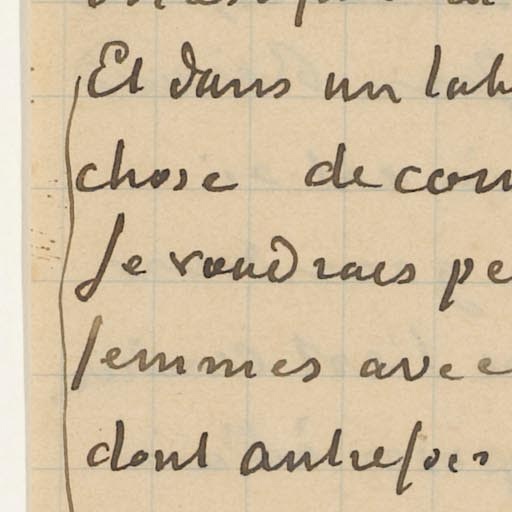 Et dans un
chose de
Je voudrais
femmes avec
dont autrefois